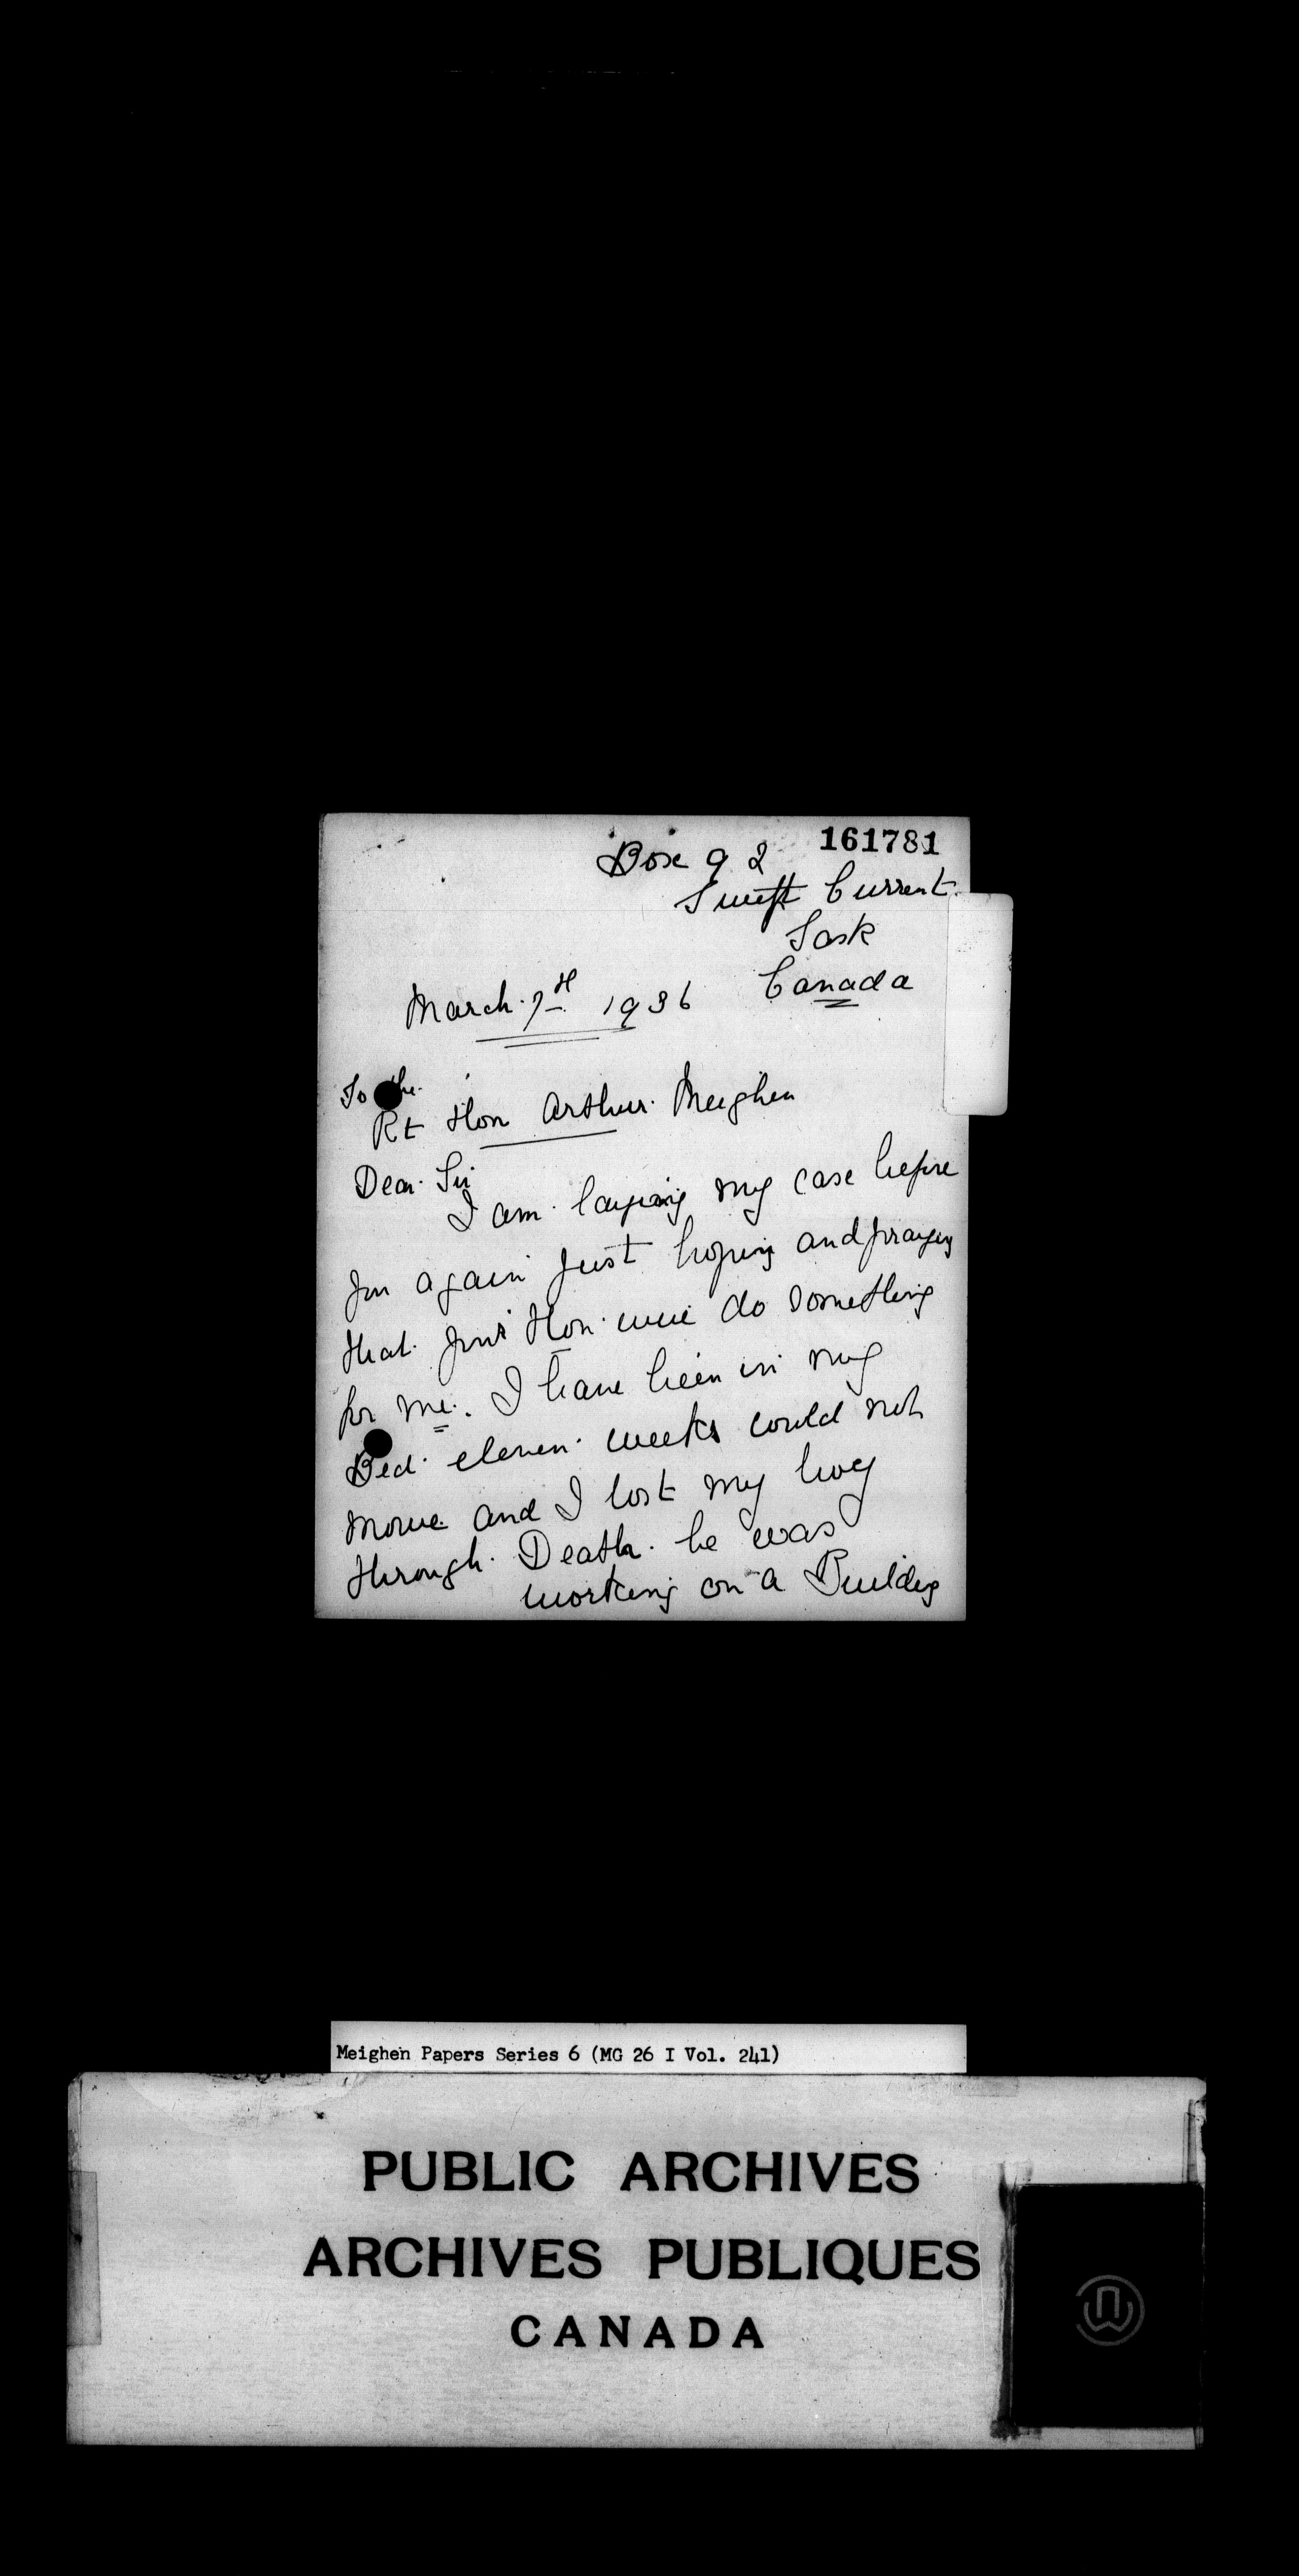 161781
Box 92
Swift Current
Sask
Canada
March 7th 1936
To the
Rt Hon Arthur Meighen
Dear Sir
I am laying my case before
you again just hoping and praying
that your Hon will do something
for me. I have been in my
Bed eleven weeks could not
move and I lost my boy
through Death. he was
working on a Building
Meighen Papers Series 6 (MG 26 I Vol. 241)
PUBLIC ARCHIVES
ARCHIVES PUBLIQUES
CANADA